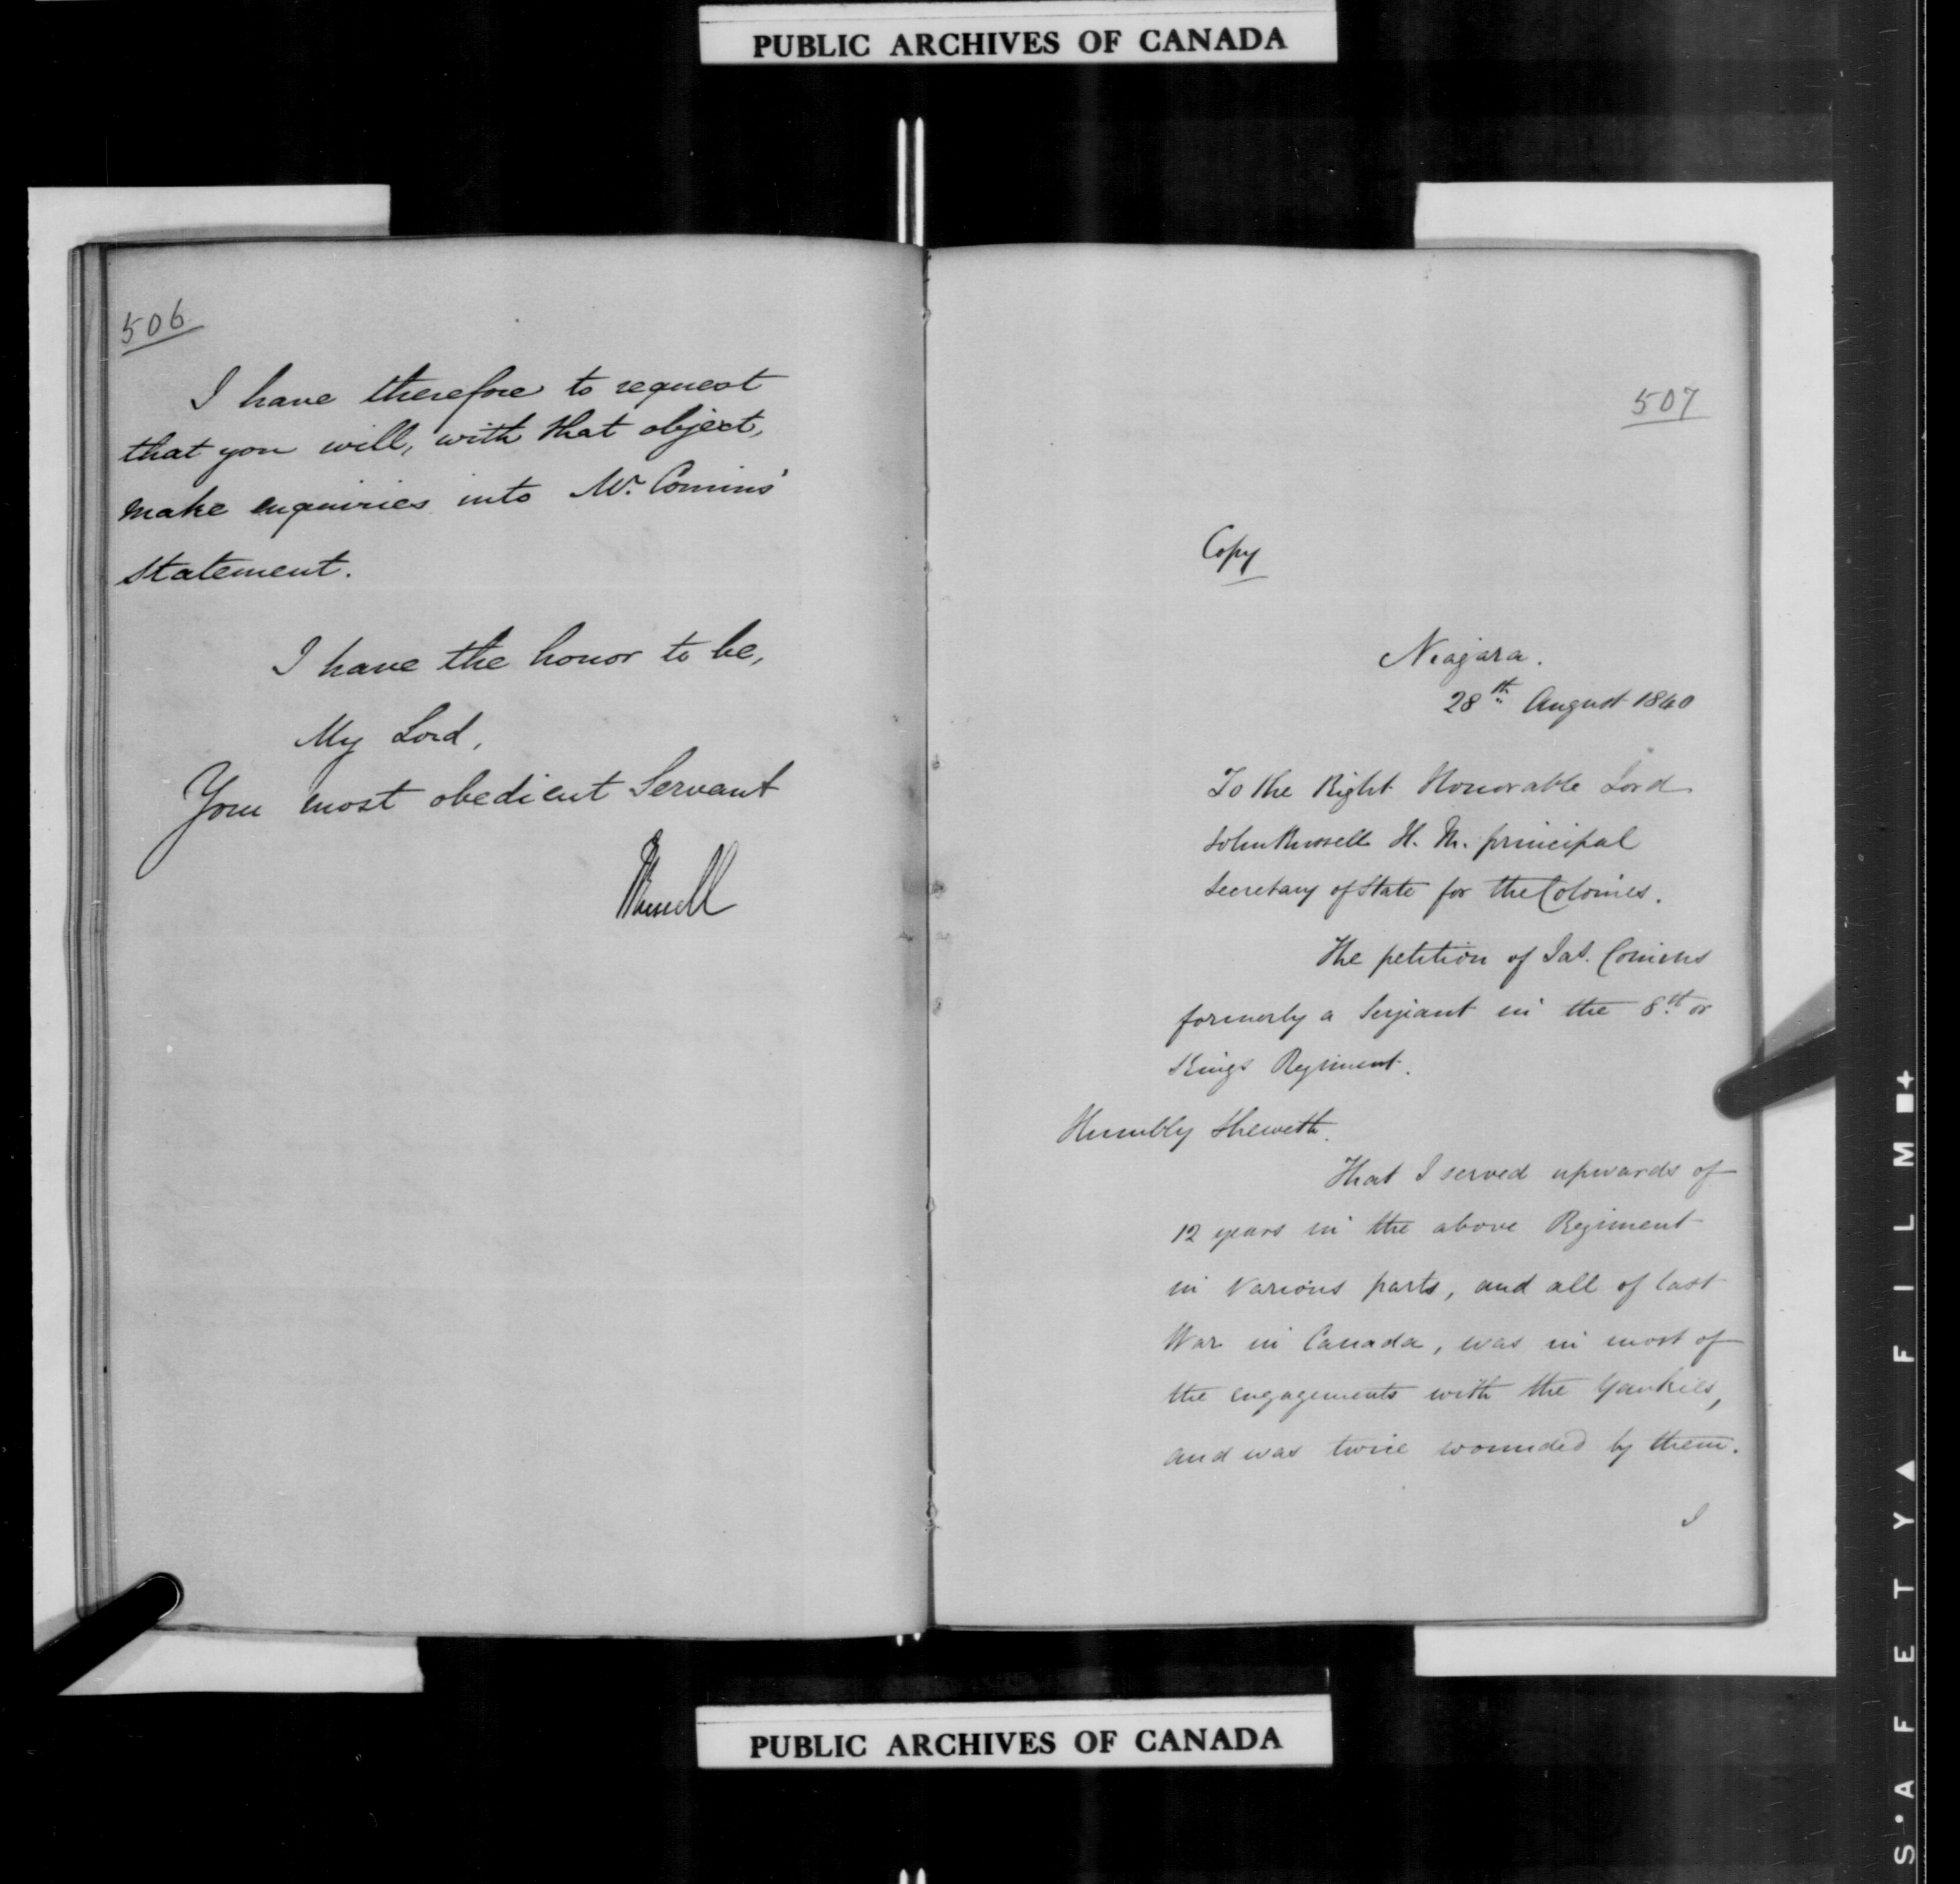 PUBLIC ARCHIVES OF CANADA
506
I have therefore to request
that you will, with that object,
make enquiries into Mr. Comins'
statement.
I have the honor to be,
My Lord,
Your most obedient Servant
JRussell
507
Copy
Niagara.
28th August 1840
To the Right Honorable Lord
John Russell H. M. principal
Secretary of State for the Colonies.
The petition of Jas. Comins
formerly a Serjeant in the 8th or
Kings Regiment.
Humbly Sheweth.
That I served upwards of
12 years in the above Regiment
in various parts, and all of last
War in Canada, was in most of
the engagements with the Yankies,
and was twice wounded by them.
I
PUBLIC ARCHIVES OF CANADA
S'AFETY▲FILM■+